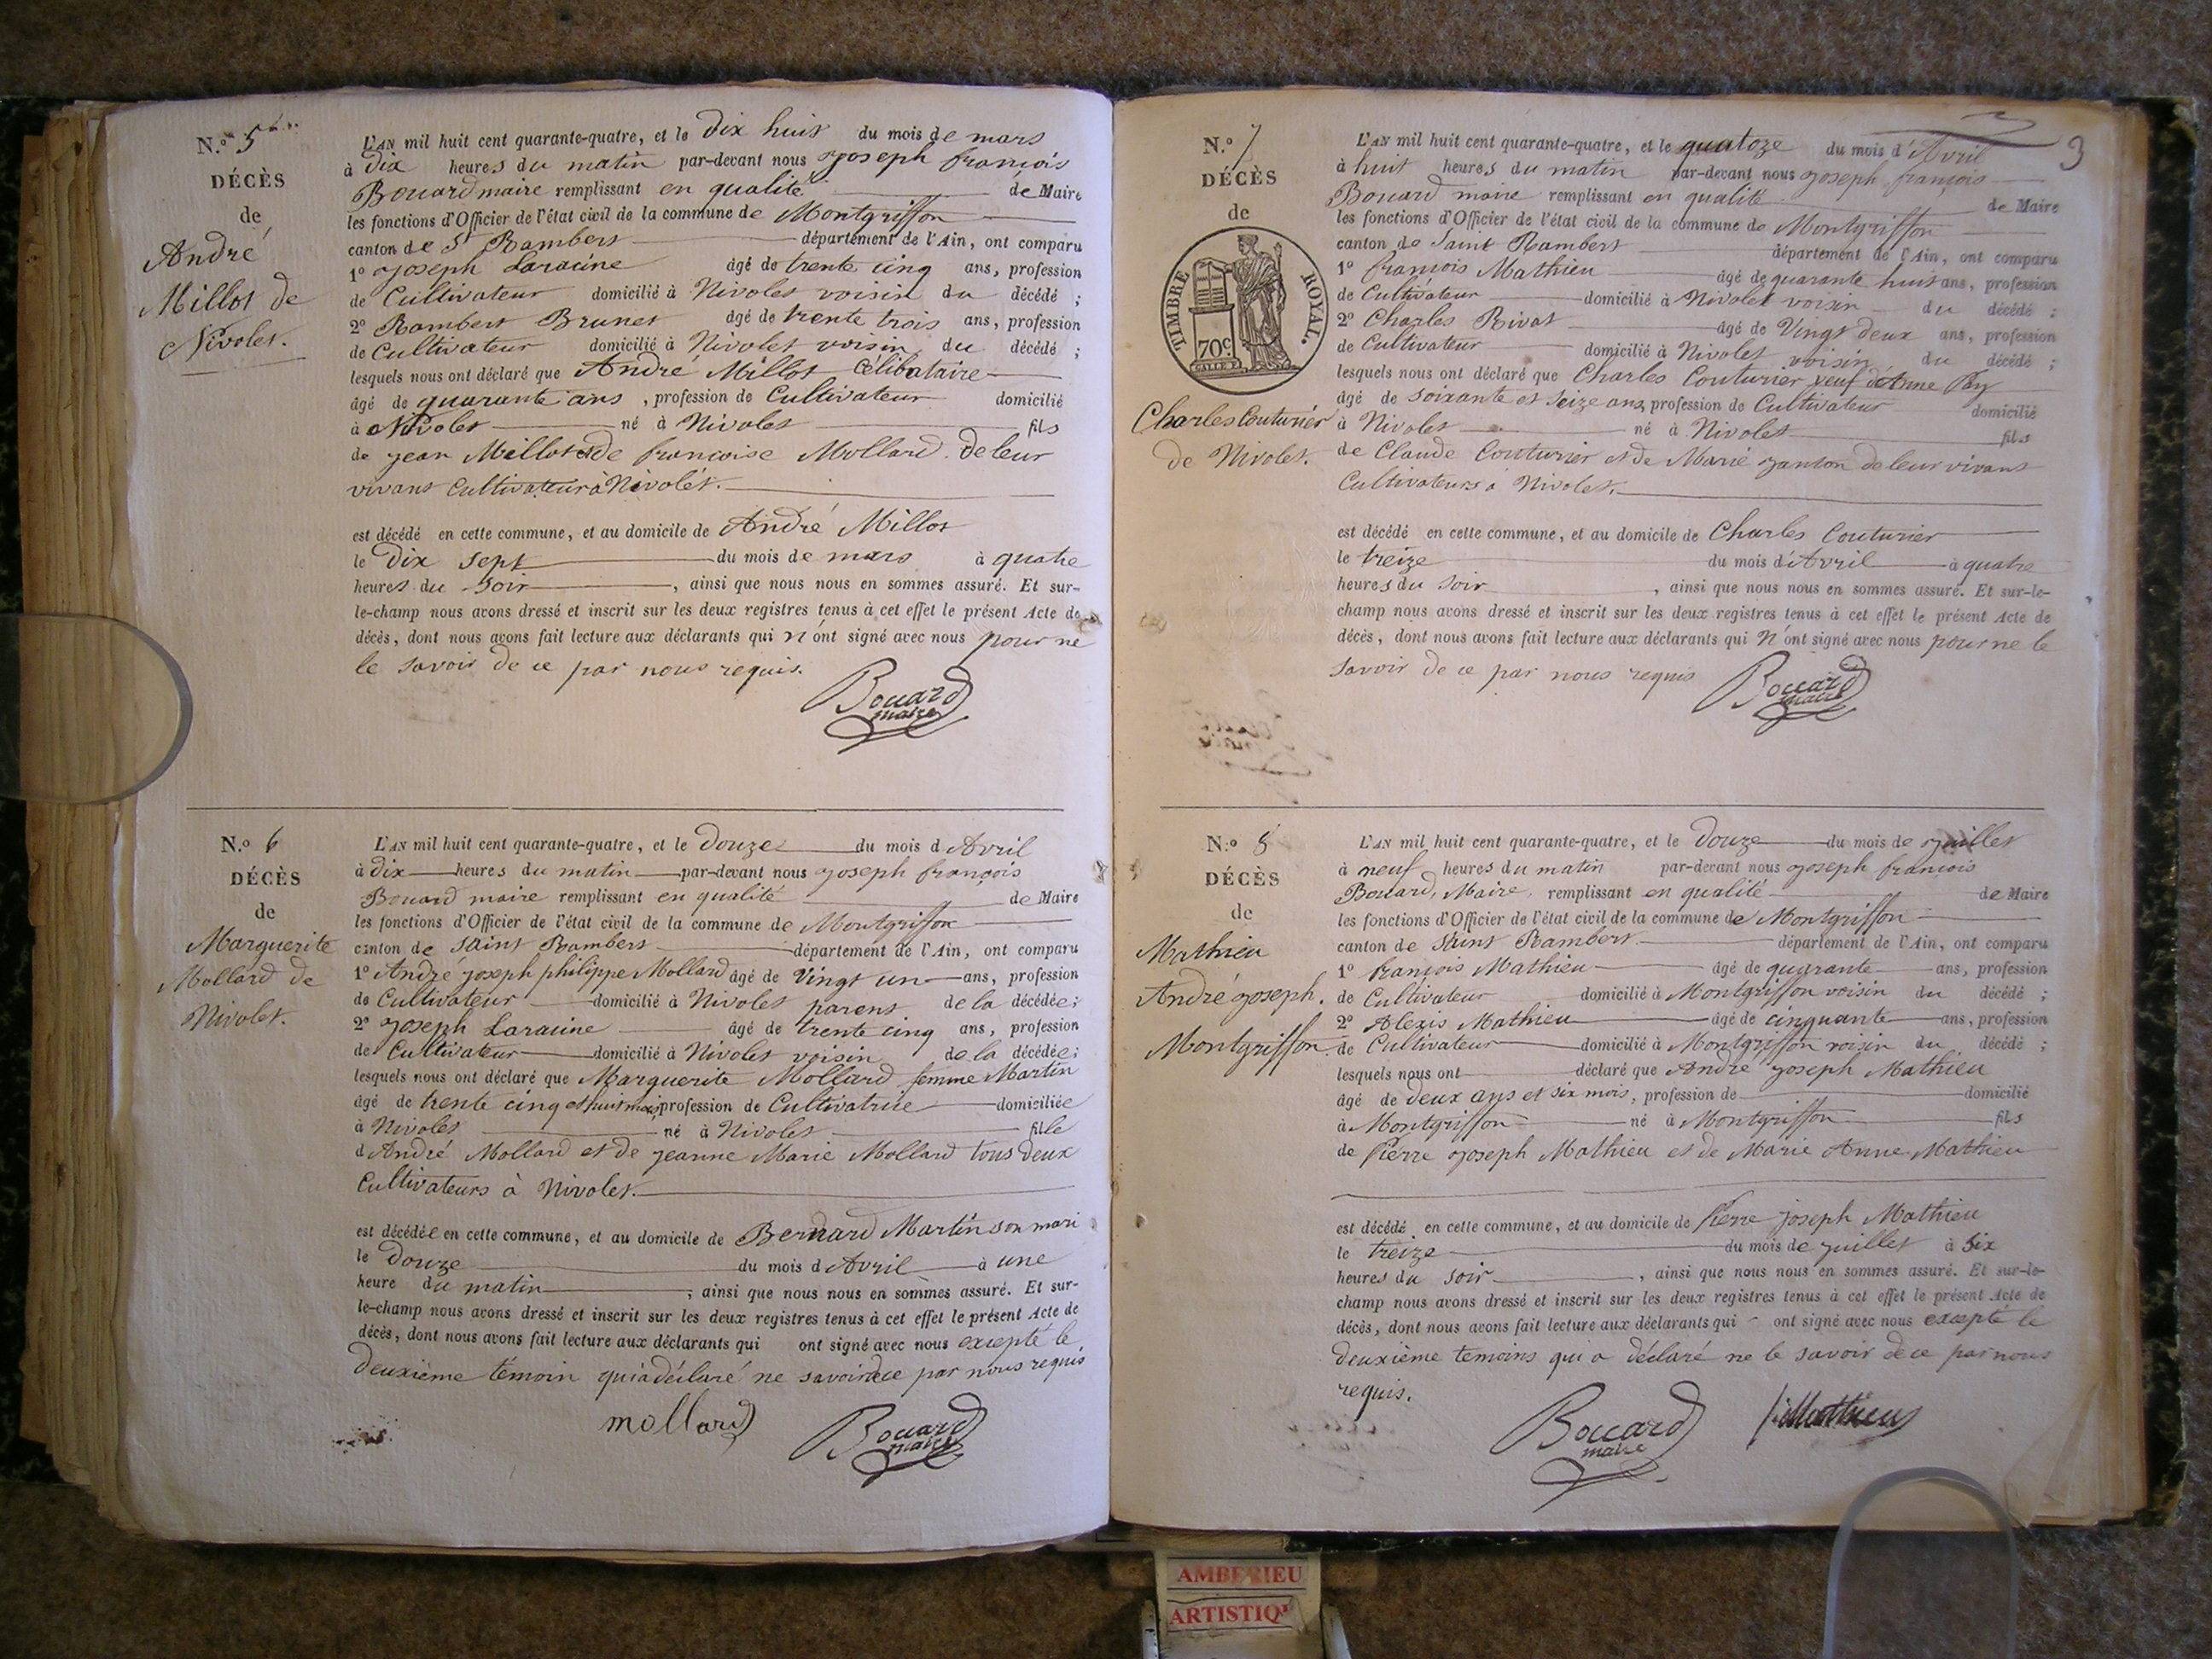 N.º 5
DÉCÈS
de
André
Millot de
Nivolet.
L'AN mil huit cent quarante-quatre, et le dix huit du mois de mars
à dix heures du matin par-devant nous Joseph françois
Bouard maire remplissant en qualité de Maire
les fonctions d'Officier de l'état civil de la commune de Montgriffon
canton de St Rambert département de l'Ain, ont comparu
1º Joseph Laracine âgé de trente cinq ans, profession
de Cultivateur domicilié à Nivolet voisin du décédé ;
2º Rambert Brunet âgé de trente trois ans, profession
de Cultivateur domicilié à Nivolet voisin du décédé ;
lesquels nous ont déclaré que André Millot Célibataire
âgé de quarante ans , profession de Cultivateur domicilié
à Nivolet né à Nivolet fils
de jean Millot et de françoise Mollard de leur
vivant Cultivateur à Nivolet.
est décédé en cette commune, et au domicile de André Millot
le dix sept du mois de mars à quatre
heures du soir , ainsi que nous nous en sommes assuré. Et sur-
le-champ nous avons dressé et inscrit sur les deux registres tenus à cet effet le présent Acte de
décès, dont nous avons fait lecture aux déclarants qui n'ont signé avec nous pour ne
le savoir de ce par nous requis.
Bouard
maire
N.º 6
DÉCÈS
de
Marguerite
Mollard de
Nivolet.
L'AN mil huit cent quarante-quatre, et le douze du mois d'Avril
à dix heures du matin par-devant nous Joseph françois
Bouard maire remplissant en qualité de Maire
les fonctions d'Officier de l'état civil de la commune de Montgriffon
canton de saint Rambert département de l'Ain, ont comparu
1º André joseph philippe Mollard âgé de Vingt un ans, profession
de Cultivateur domicilié à Nivolet parent de la décédée ;
2º Joseph Laracine âgé de trente cinq ans, profession
de Cultivateur domicilié à Nivolet voisin de la décédée ;
lesquels nous ont déclaré que Marguerite Mollard femme Martin
âgé de trente cinq et huit mois, profession de Cultivatrice domiciliée
à Nivolet né à Nivolet fille
d'André Mollard et de jeanne Marie Mollard tous deux
Cultivateurs à Nivolet.
est décédée en cette commune, et au domicile de Bernard Martin son mari
le douze du mois d'Avril à une
heure du matin , ainsi que nous nous en sommes assuré. Et sur-
le-champ nous avons dressé et inscrit sur les deux registres tenus à cet effet le présent Acte de
décès, dont nous avons fait lecture aux déclarants qui ont signé avec nous excepté le
deuxième témoin qui a déclaré ne savoir de ce par nous requis
mollard Bouard
maire
3
N.º 7
DÉCÈS
de
TIMBRE ROYAL.
70c
Charles Couturier
de Nivolet.
L'AN mil huit cent quarante-quatre, et le quatoze du mois d'Avril
à huit heures du matin par-devant nous Joseph françois
Bouard maire remplissant en qualité de Maire
les fonctions d'Officier de l'état civil de la commune de Montgriffon
canton de Saint Rambert département de l'Ain, ont comparu
1º françois Mathieu âgé de quarante huit ans, profession
de Cultivateur domicilié à Nivolet voisin du décédé ;
2º Charles Rivat âgé de Vingt deux ans, profession
de Cultivateur domicilié à Nivolet voisin du décédé ;
lesquels nous ont déclaré que Charles Couturier veuf d'Anne Pay
âgé de soixante et seize ans, profession de Cultivateur domicilié
à Nivolet né à Nivolet fils
de Claude Couturier et de Marie Janton de leur vivant
Cultivateurs à Nivolet.
est décédé en cette commune, et au domicile de Charles Couturier
le treize du mois d'Avril à quatre
heures du soir , ainsi que nous nous en sommes assuré. Et sur-le-
champ nous avons dressé et inscrit sur les deux registres tenus à cet effet le présent Acte de
décès, dont nous avons fait lecture aux déclarants qui n'ont signé avec nous pour ne le
savoir de ce par nous requis
Bouard
maire
N.º 8
DÉCÈS
de
Mathieu
André Joseph.
Montgriffon
L'AN mil huit cent quarante-quatre, et le douze du mois de juillet
à neuf heures du matin par-devant nous Joseph françois
Bouard, Maire, remplissant en qualité de Maire
les fonctions d'Officier de l'état civil de la commune de Montgriffon
canton de Saint Rambert département de l'Ain, ont comparu
1º François Mathieu âgé de quarante ans, profession
de Cultivateur domicilié à Montgriffon voisin du décédé ;
2º Alexis Mathieu âgé de cinquante ans, profession
de Cultivateur domicilié à Montgriffon voisin du décédé ;
lesquels nous ont déclaré que André Joseph Mathieu
âgé de deux ans et six mois, profession de domicilié
à Montgriffon né à Montgriffon fils
de Pierre Joseph Mathieu et de Marie Anne Mathieu
est décédé en cette commune, et au domicile de Pierre Joseph Mathieu
le treize du mois de juillet à Six
heures du soir , ainsi que nous nous en sommes assuré. Et sur-le-
champ nous avons dressé et inscrit sur les deux registres tenus à cet effet le présent Acte de
décès, dont nous avons fait lecture aux déclarants qui ont signé avec nous excepté le
deuxième temoins qui a déclaré ne le savoir de ce par nous
requis.
Bouard Mathieu
maire
AMBERIEU
ARTISTIQ